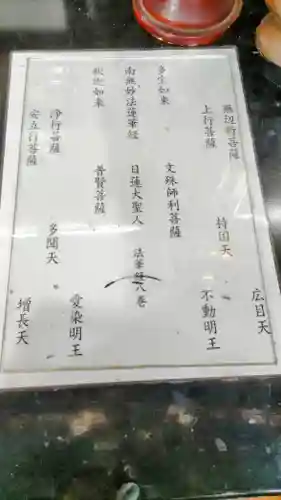 広目天
無辺行菩薩
持国天
上行菩薩
不動明王
多宝如来
文殊師利菩薩
南無妙法蓮華経
日蓮大聖人
法華経八巻
釈迦如来
普賢菩薩
愛染明王
浄行菩薩
多聞天
安立行菩薩
増長天